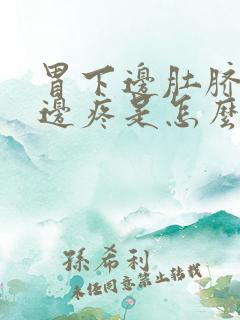 胃下邊肚脐
邊疼是怎麽
孫希利
未經同意禁止轉載